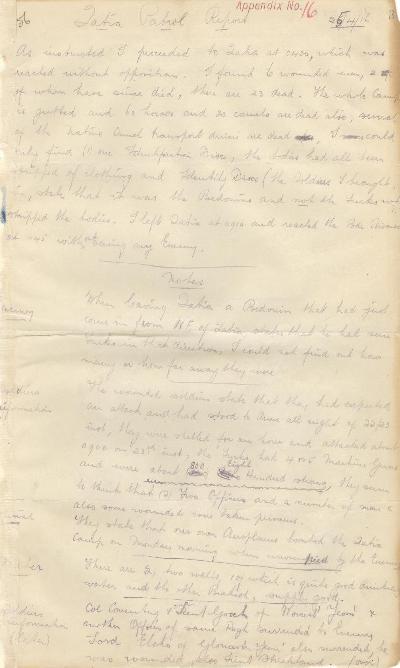 56 Katia Patrol Report Appendix No. 16 25/4/16
As instructed I proceeded to Katia at 0430, which was
reached without opposition. I found 6 wounded men, 2
of whom have since died, there are 23 dead. The whole Camp
is gutted and 60 horses and 20 camels are dead also, several
of the Native Camel Transport drivers are dead. I could
only find 1 one Identification Disc, the bodies had all been
stripped of clothing and Identity Discs (the soldiers I brought
in, state that it was the Bedouins and not the Turks who
stripped the bodies. I left Katia at 0900 and reached the
at without seeing any Enemy.
Notes
When leaving Katia a Bedouin that had just
come in from of Katia states that he had seen
Turks in that direction, I could not find out how
many or how far away they were
The wounded soldiers state that they had expected
an attack and had stood to Arms all night of 22/23
inst, they were shelled for an hour and attacked about
0900 on 23rd inst, the Turks had 4 or 5 Machine Guns
and were about 800 Eight Hundred strong, they seem
to think that 12 Officers and a number of men &
also some wounded were taken prisoners.
They state that our own Aeroplanes bombed the Katia
Camp on Monday morning when occupied by the Enemy
There are 2, two wells, 1 of which is quite good drinking
water and the other Brackish, supply good.
Col Coventry & Lieut of Worcs Yeom &
another Officer of same Regt surrended to Enemy
Lord Elcho of Gloucester Yeom also surrended, he
was wounded, also Lieut